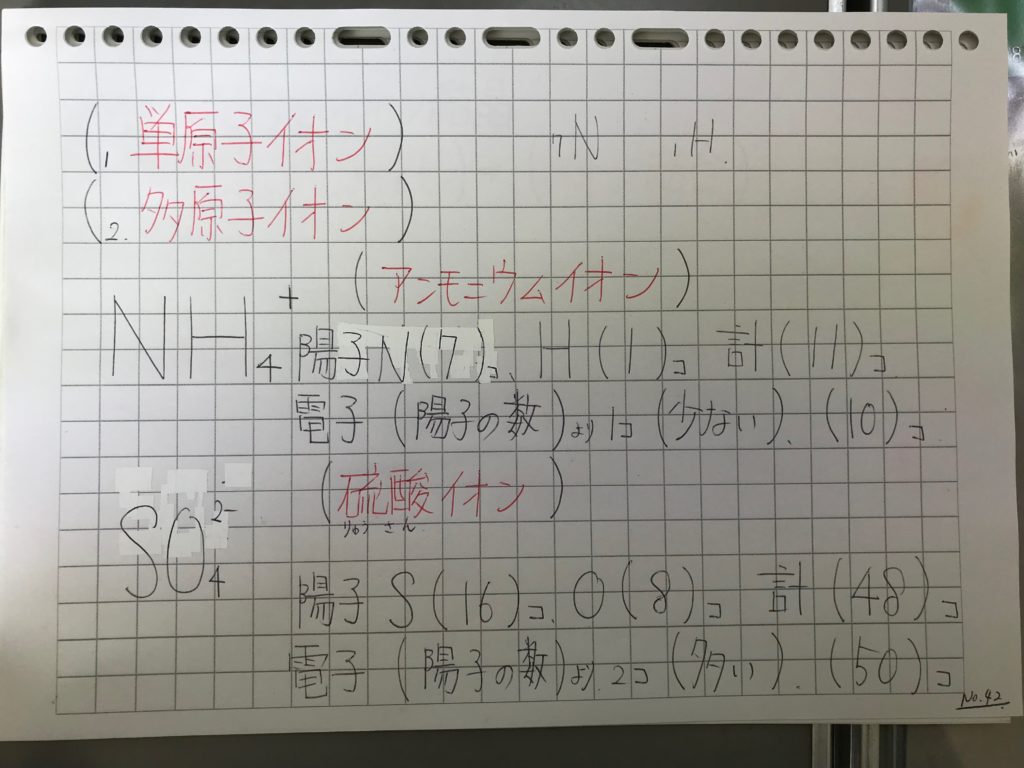 (1. 単原子イオン) ₇N ₁H.
(2. 多原子イオン)
(アンモニウムイオン)
NH₄⁺ 陽子N(7)コ、H(1)コ 計(11)コ
電子(陽子の数)より1コ(少ない)、(10)コ
(硫酸イオン)
りゅうさん
SO₄²⁻
陽子 S(16)コ、O(8)コ 計(48)コ
電子(陽子の数)より、2コ(多い)、(50)コ
No.42